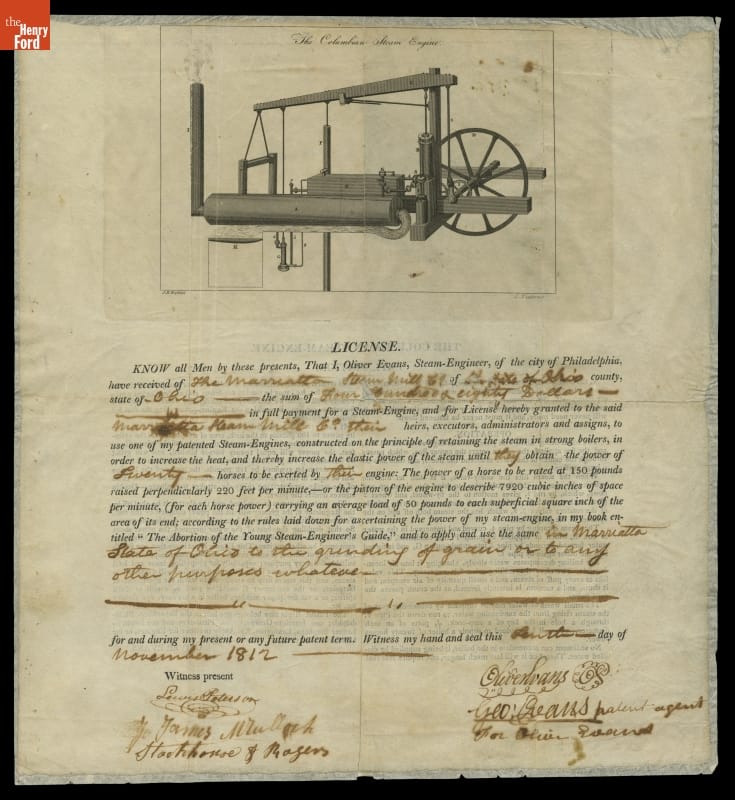 the Henry Ford
The Columbian Steam Engine
LICENSE.
KNOW all Men by these presents, That I, Oliver Evans, Steam-Engineer, of the city of Philadelphia,
have received of The Marriatta Steam Mill Co of State of Ohio county,
state of Ohio the sum of Four Hundred eighty Dollars
in full payment for a Steam-Engine, and for License hereby granted to the said
Marriatta Steam Mill Co. their heirs, executors, administrators and assigns, to
use one of my patented Steam-Engines, constructed on the principle of retaining the steam in strong boilers, in
order to increase the heat, and thereby increase the elastic power of the steam until they obtain the power of
Twenty horses to be exerted by their engine: The power of a horse to be rated at 150 pounds
raised perpendicularly 220 feet per minute,—or the piston of the engine to describe 7920 cubic inches of space
per minute, (for each horse power) carrying an average load of 50 pounds to each superficial square inch of the
area of its end; according to the rules laid down for ascertaining the power of my steam-engine, in my book en-
titled "The Abortion of the Young Steam-Engineer's Guide," and to apply and use the same in Marriatta
State of Ohio to the grinding of grain or to any
other purposes whatever
for and during my present or any future patent term. Witness my hand and seal this day of
November 1812
Witness present
Oliver Evans
Lewis Peterson
Geo: Evans patent agent
James McCulloch
for Oliver Evans
Stackhouse & Rogers